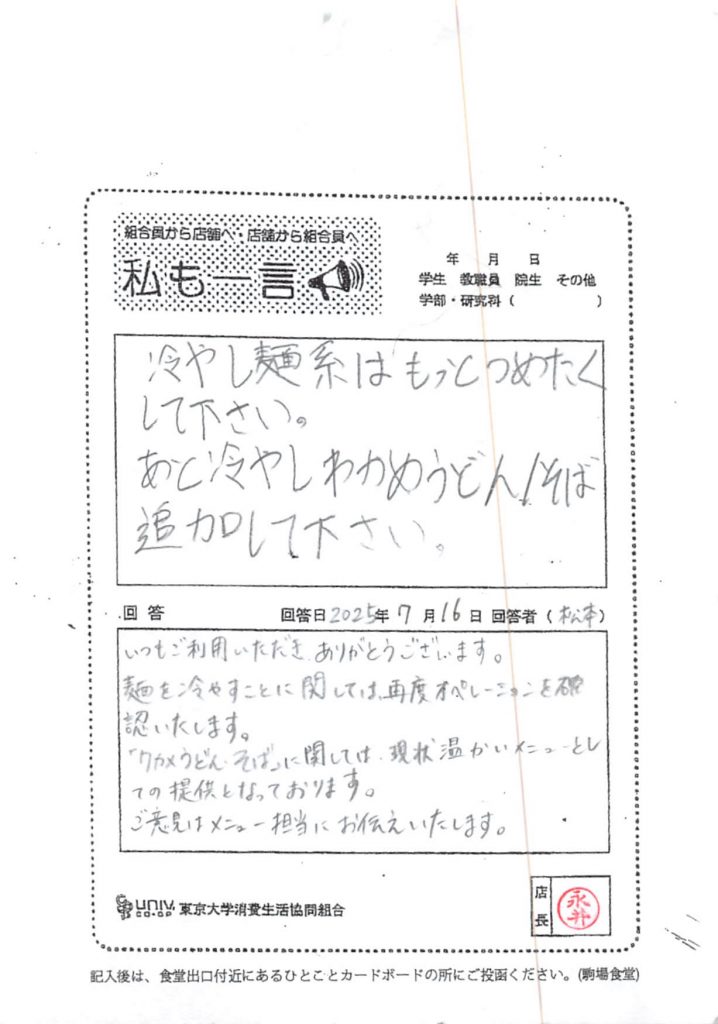 組合員から店舗へ・店舗から組合員へ
私も一言
年 月 日
学生 教職員 院生 その他
学部・研究科( )
冷やし麺系はもっとつめたく
して下さい。
あと冷やしわかめうどん/そば
追加して下さい。
回答 回答日2025年7月16日 回答者(松本)
いつもご利用いただきありがとうございます。
麺を冷やすことに関しては、再度オペレーションを確
認いたします。
「ワカメうどん・そば」に関しては、現状温かいメニューとし
ての提供となっております。
ご意見はメニュー担当にお伝えいたします。
UNIV.
CO-OP
東京大学消費生活協同組合
店長
永井
記入後は、食堂出口付近にあるひとことカードボードの所にご投函ください。(駒場食堂)